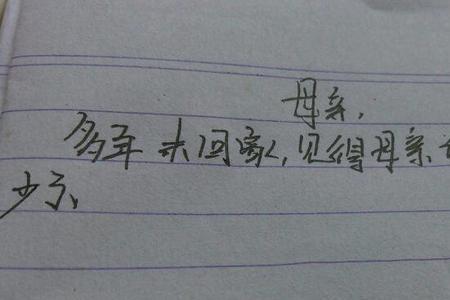 母亲.
多年未回家,见得母亲
少